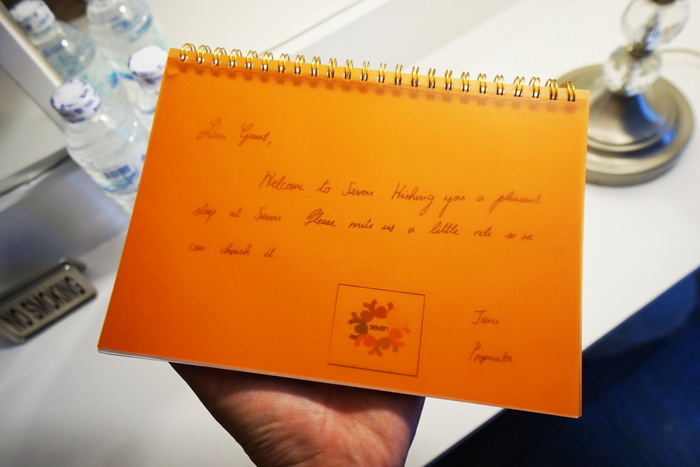 Dear Guest,
Welcome to Seven. Wishing you a pleasant
stay at Seven. Please write us a little note so we
can cherish it.
seven
Jane
Proprietor
NO SMOKING